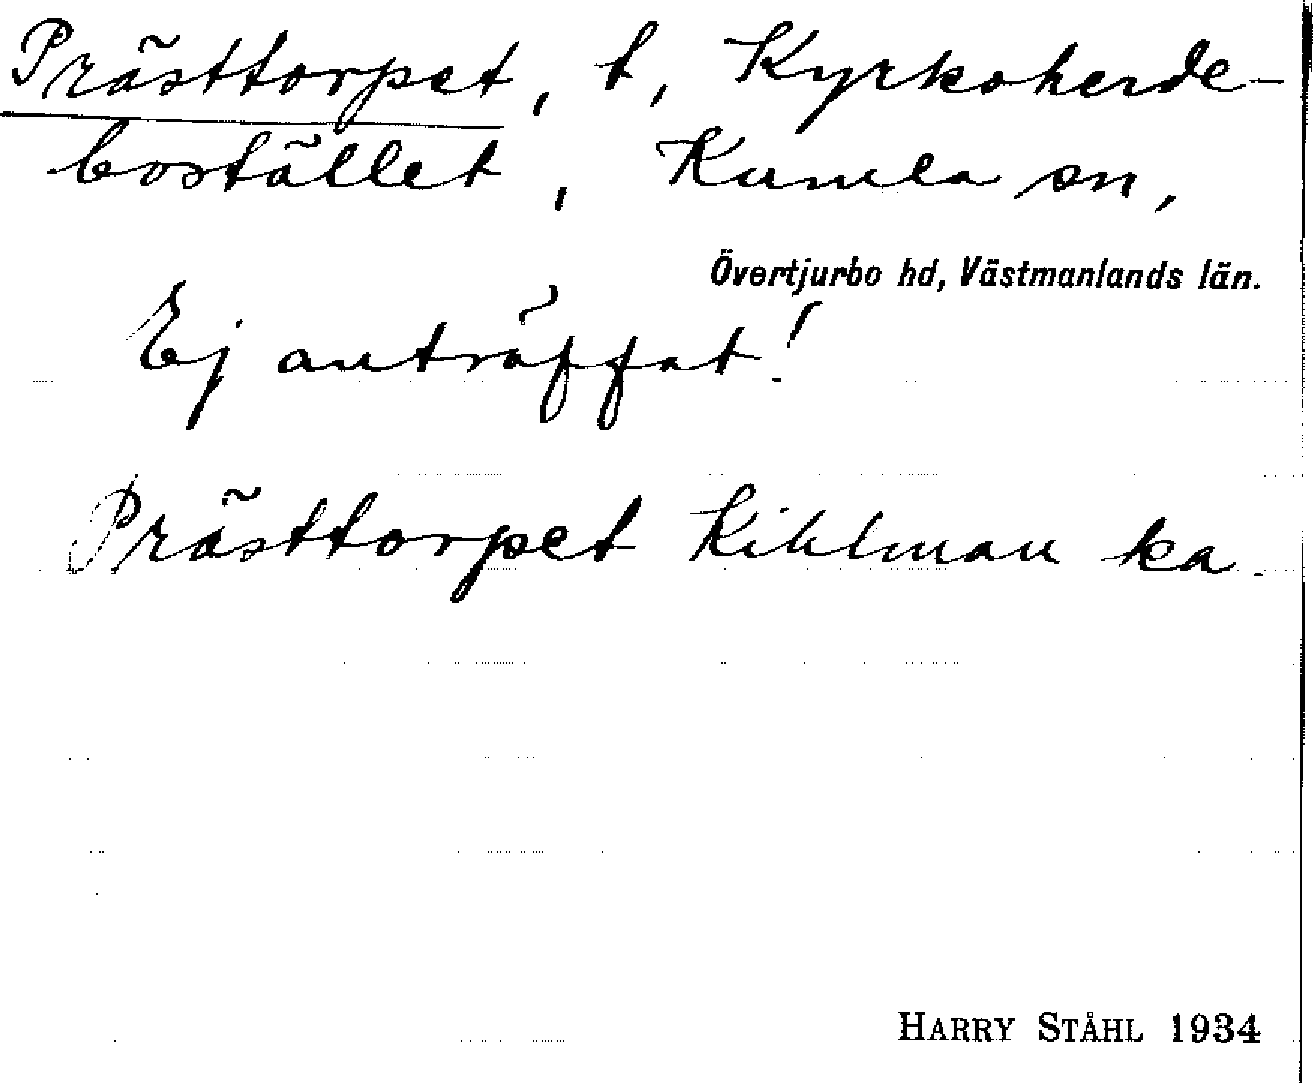 Prästtorpet, t, Kyrkoherde-
bostället, Kumla sn,
Övertjurbo hd, Västmanlands län.
Ej anträffat!
Prästtorpet Kihlman ka.
HARRY STÅHL 1934